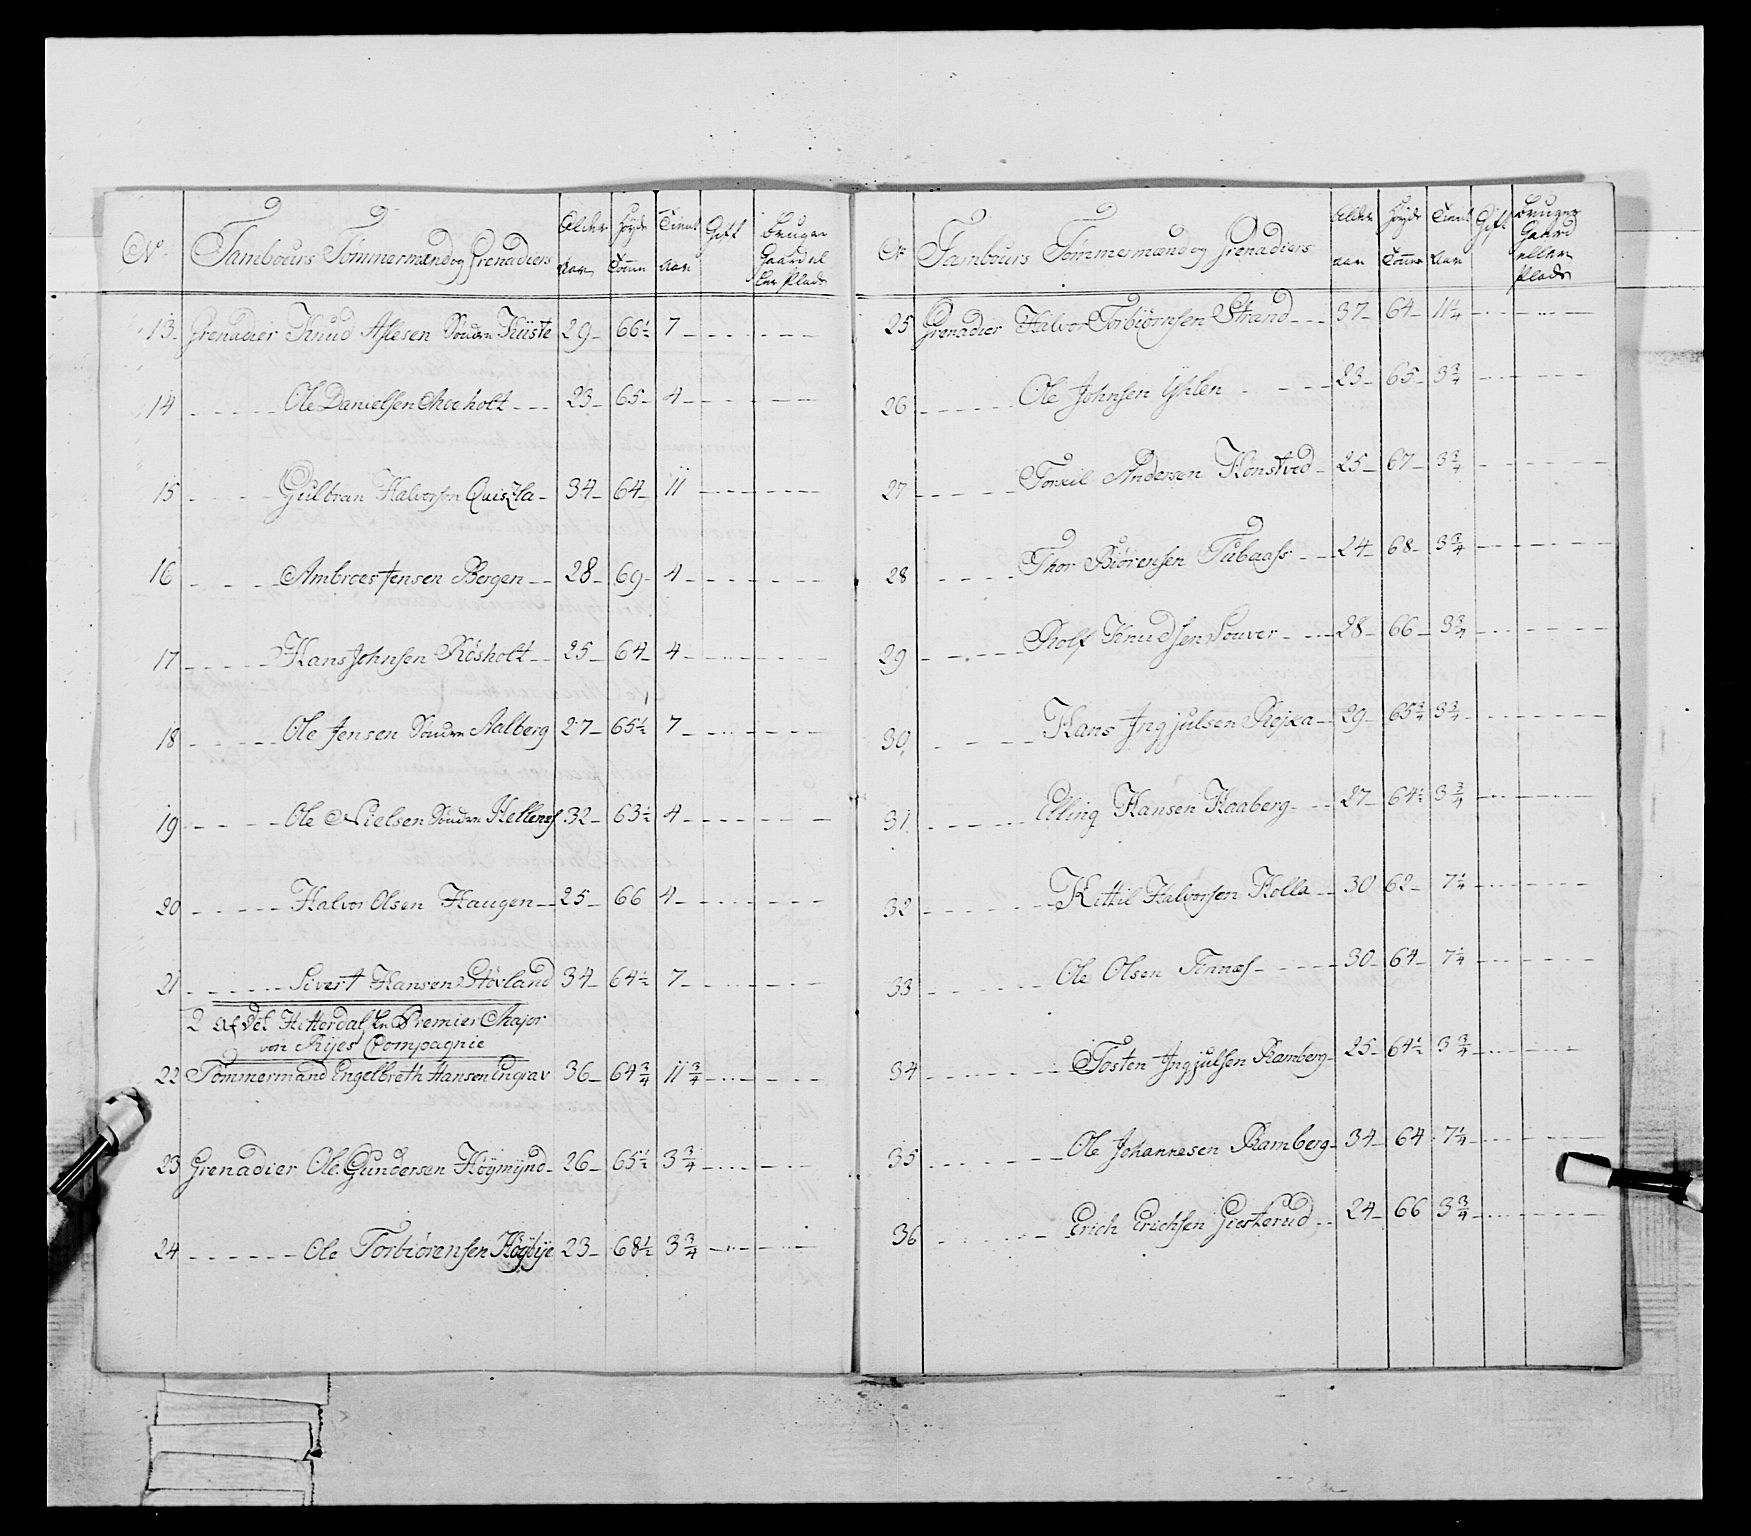 No. Tambours Tømmermænd og Grenadiers Alder Aar Høyde Tomme Tient Aar Gift Bruger Gaard el Ler Plads
13. Grenadier Knud Aslesen Søndre Kiiste 29 66½ 7
14 Ole Danielsen Moeholt 23 65 4
15 Gulbran Halvorsen Quisla 34 64 11
16 Ambroes Jensen Bergen 28 69 4
17 Hans Johnsen Røsholt 25 64 4
18 Ole Jensen Søndre Aalberg 27 65½ 7
19 Ole Nielsen Søndre Hellenes 32 63½ 4
20 Halvor Olsen Haugen 25 66 4
21 Sivert Hansen Støvland 34 64½ 7
2 af det Hitterdalske Premier Major
von Rijes Compagnie
22 Tømmermand Engelbreth Hansen Engrav 36 64¾ 11¾
23 Grenadier Ole Gundersen Høymynd 26 65½ 3¾
24 Ole Torbiørensen Høybye 23 68½ 3¾
No Tambours Tømmermænd og Grenadiers Alder aar Høyde Tomme Tient Aar Gift Bruger Gaard eller Plads
25 Grenadier Halvor Torbiørnsen Strand 37 64 11¼
26 Ole Johnsen Yhlen 23 65 3¾
27 Torkil Andersen Kønstved 25 67 3¾
28 Thor Biørensen Tubaass 24 68 3¾
29 Rolf Knudsen Souver 28 66 3¾
30 Hans Jngjulsen Rojka 29 65¾ 3¾
31 Elling Hansen Haaberg 27 64½ 3¾
32 Kittil Halvorsen Kolla 30 62 7¼
33 Ole Olsen Tinnes 30 64 7¼
34 Tosten Jngjulsen Ramberg 25 64½ 3¾
35 Ole Johannesen Ramberg 34 64 7¼
36 Erich Erichsen Giesterud 24 66 3¾